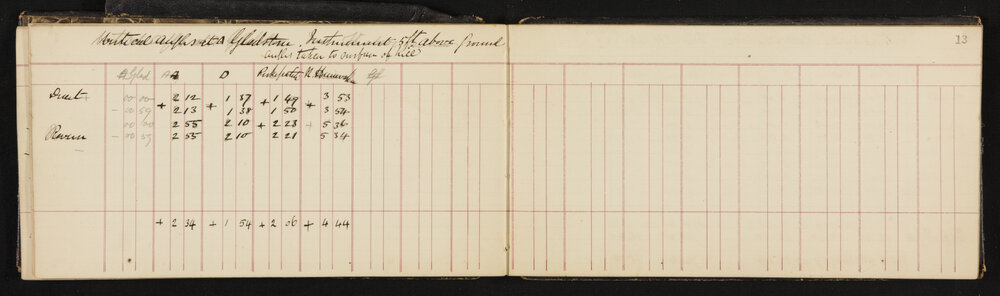 Vertical angles at Δ Gladstone. Instrument 5ft above ground
angles taken to surface of hill
13
Glad A D
Direct 00 00 + 2 12 + 1 37 + 1 49 + 3 53
- 00 59 2 13 1 38 1 50 3 54
00 00 2 55 2 10 + 2 23 + 5 36
Reverse - 00 59 2 55 2 10 2 21 5 34
+ 2 34 + 1 54 + 2 06 + 4 44